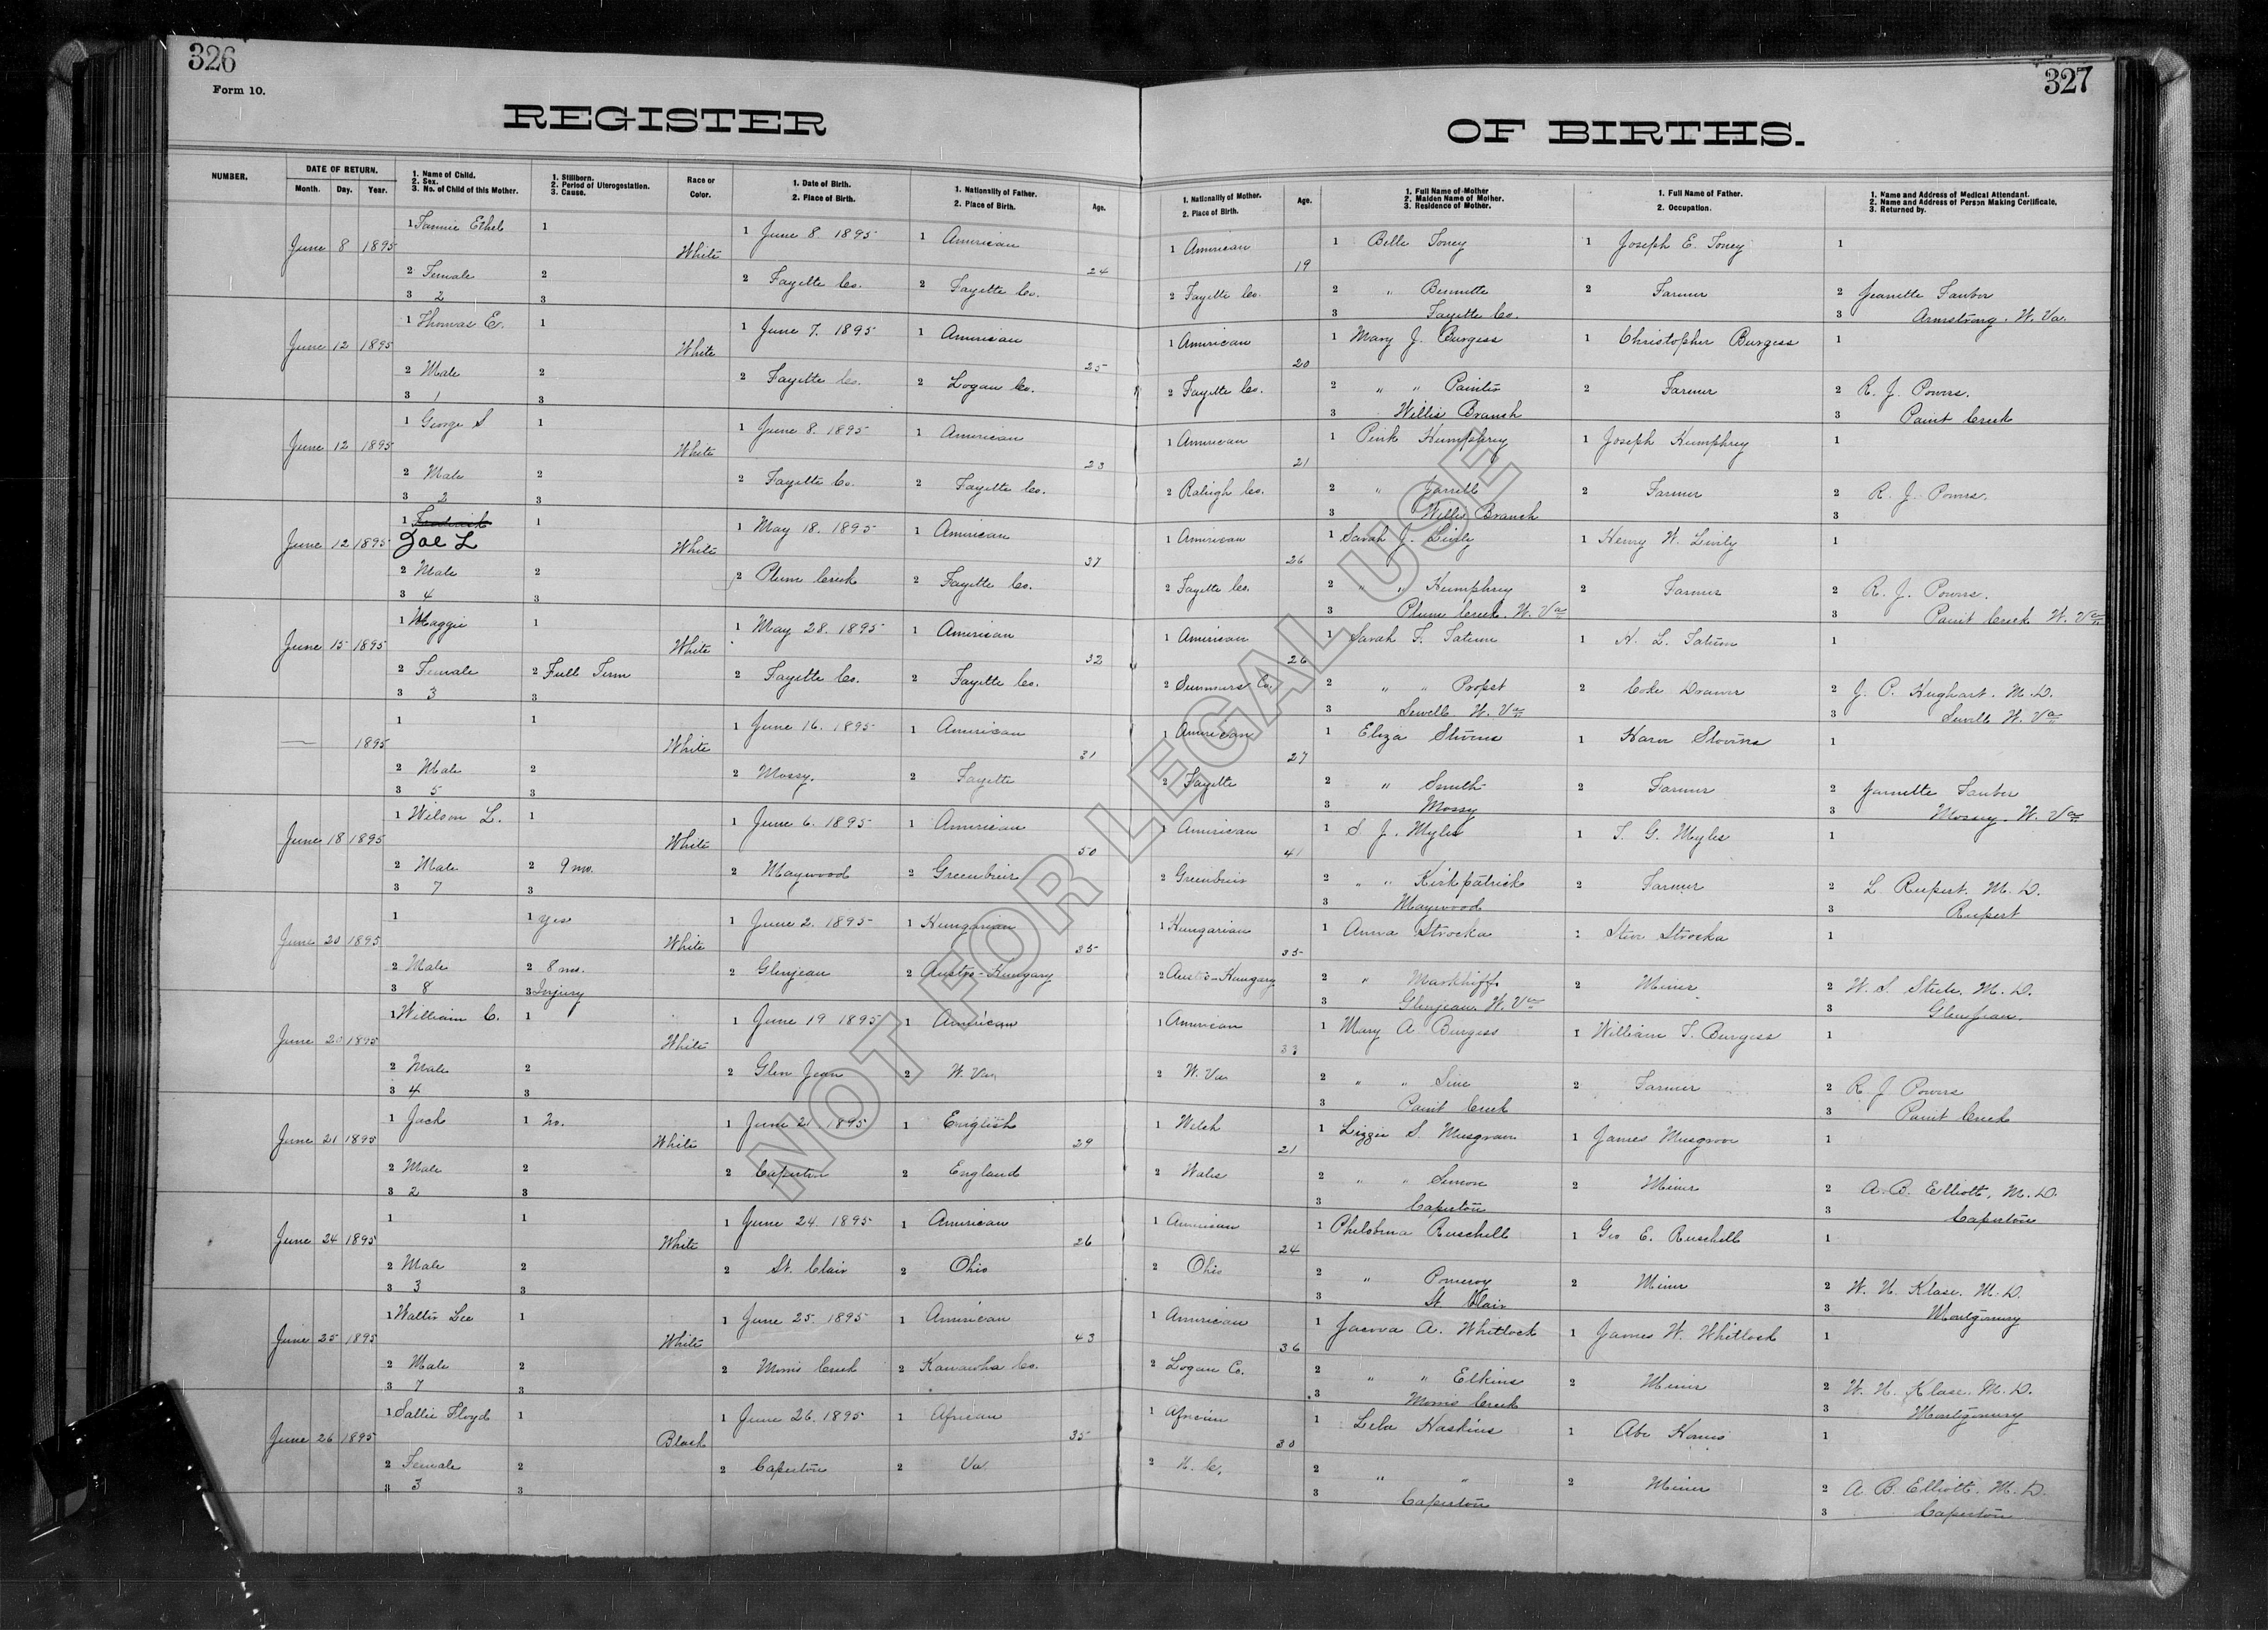 326
Form 10.
REGISTER OF BIRTHS.
327
NUMBER.
DATE OF RETURN.
Month. Day. Year.
1. Name of Child.
2. Sex.
3. No. of Child of this Mother.
1. Stillborn.
2. Period of Uterogestation.
3. Cause.
Race or Color.
1. Date of Birth.
2. Place of Birth.
1. Nationality of Father.
2. Place of Birth.
Age.
1. Nationality of Mother.
2. Place of Birth.
Age.
1. Full Name of Mother
2. Maiden Name of Mother.
3. Residence of Mother.
1. Full Name of Father.
2. Occupation.
1. Name and Address of Medical Attendant.
2. Name and Address of Person Making Certificate.
3. Returned by.
June 8 1895 1 Fannie Ethel 1 White 1 June 8. 1895 1 American 24 1 American 19 1 Belle Toney 1 Joseph E. Toney 1
2 Female 2 2 Fayette Co. 2 Fayette Co. 2 Fayette Co. 2 " Bennette 2 Farmer 2 Jeanette
3 2 3 3 Fayette Co. 3 Armstrong. W. Va.
June 12 1895 1 Thomas E. 1 White 1 June 7. 1895 1 American 25 1 American 20 1 Mary J. Burgess 1 Christopher Burgess 1
2 Male 2 2 Fayette Co. 2 Logan Co. 2 Fayette Co. 2 " " 2 Farmer 2 R. J. Powers.
3 1 3 3 Willis Branch 3 Paint Creek
June 12 1895 1 George S 1 White 1 June 8. 1895 1 American 23 1 American 21 1 Pink Humphrey 1 Joseph Humphrey 1
2 Male 2 2 Fayette Co. 2 Fayette Co. 2 Raleigh Co. 2 " Jarrell 2 Farmer 2 R. J. Powers.
3 2 3 3 Willis Branch 3
June 12 1895 1 Zoe L 1 White 1 May 18. 1895 1 American 37 1 American 26 1 Sarah J. Lively 1 Henry W. Lively 1
2 Male 2 2 Plum Creek 2 Fayette Co. 2 Fayette Co. 2 " " Humphrey 2 Farmer 2 R. J. Powers.
3 4 3 3 Plum Creek. W. Va 3 Paint Creek W. Va
June 15 1895 1 Maggie 1 White 1 May 28. 1895 1 American 32 1 American 26 1 Sarah F. Tatum 1 H. L. Tatum 1
2 Female 2 Full Term 2 Fayette Co. 2 Fayette Co. 2 Summers Co. 2 " " Propst 2 Coke Drawer 2 J. C. Hughart. M.D.
3 3 3 3 Sewell W. Va 3 Sewell W. Va
— 1895 1 1 White 1 June 16. 1895 1 American 31 1 American 27 1 Eliza Stevens 1 1
2 Male 2 2 Mossy. 2 Fayette 2 Fayette 2 " Smith 2 Farmer 2
3 5 3 3 Mossy 3 Mossy. W. Va
June 18 1895 1 Wilson L. 1 White 1 June 6. 1895 1 American 50 1 American 41 1 S. J. Myles 1 T. G. Myles 1
2 Male 2 9 mo. 2 Maywood 2 Greenbrier 2 Greenbrier 2 " " Kirkpatrick 2 Farmer 2 L Rupert. M. D.
3 7 3 3 Maywood 3 Rupert
June 20 1895 1 1 Yes White 1 June 2. 1895 1 Hungarian 35 1 Hungarian 35 1 Anna Strocka 1 Steve Strocka 1
2 Male 2 8 mo. 2 Glenjean 2 Austro-Hungary 2 Austro-Hungary 2 " 2 Miner 2 W. S. Steele. M. D.
3 8 3 Injury 3 Glenjean. W. Va 3 Glenjean.
June 20 1895 1 William C. 1 White 1 June 19 1895 1 American 1 American 33 1 Mary A. Burgess 1 William T. Burgess 1
2 Male 2 2 Glen Jean 2 W. Va. 2 W. Va 2 " " 2 Farmer 2 R. J. Powers
3 4 3 3 Paint Creek 3 Paint Creek
June 21 1895 1 Jack 1 No. White 1 June 21 1895 1 English 29 1 Welsh 21 1 Lizzie S. Musgrave 1 James Musgrove 1
2 Male 2 2 Caperton 2 England 2 Wales 2 " " 2 Miner 2 A. B. Elliott, M. D.
3 2 3 3 Caperton 3 Caperton
June 24 1895 1 1 White 1 June 24. 1895 1 American 26 1 American 24 1 Ruschell 1 Geo E. Ruschell 1
2 Male 2 2 St. Clair 2 Ohio 2 Ohio 2 " Pomeroy 2 Miner 2 W. H. Klase. M. D.
3 3 3 3 St Clair 3 Montgomery
June 25 1895 1 Walter Lee 1 White 1 June 25. 1895 1 American 43 1 American 36 1 A. Whitlock 1 James W. Whitlock 1
2 Male 2 2 Morris Creek 2 Kanawha Co. 2 Logan Co. 2 " " Elkins 2 Miner 2 W. H. Klase. M. D.
3 7 3 3 Morris Creek 3 Montgomery
June 26 1895 1 Sallie Floyd 1 Black 1 June 26. 1895 1 African 35 1 African 30 1 Lela Haskins 1 Abe 1
2 Female 2 2 Caperton 2 Va 2 N. C. 2 " " 2 Miner 2 A. B. Elliott. M. D.
3 3 3 3 Caperton 3 Caperton
NOT FOR LEGAL USE